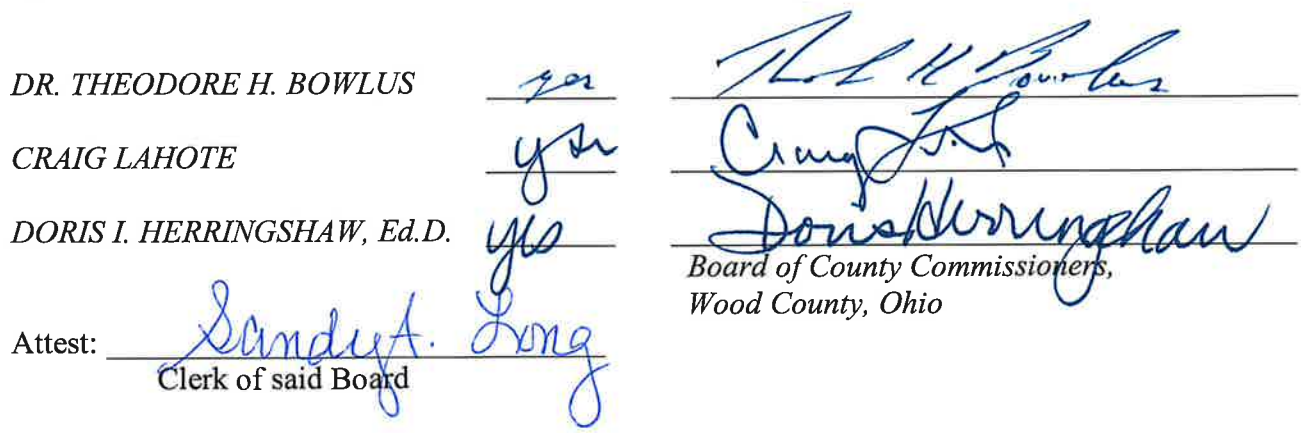 DR. THEODORE H. BOWLUS yes Theodore H Bowlus
CRAIG LAHOTE yes Craig LaHote
DORIS I. HERRINGSHAW, Ed.D. yes Doris Herringshaw
Board of County Commissioners,
Wood County, Ohio
Attest: Sandy A. Long
Clerk of said Board